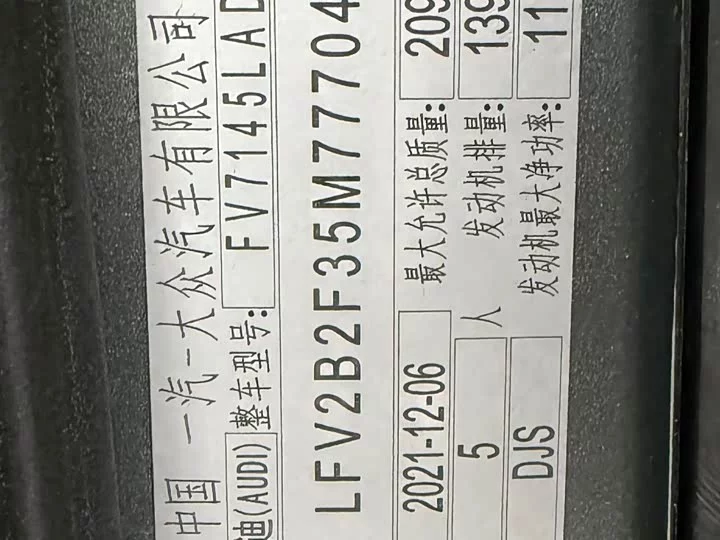 中国 一汽-大众汽车有限公司
迪(AUDI) 整车型号: FV7145LAD
LFV2B2F35M77704
2021-12-06 最大允许总质量: 209
5 人 发动机排量: 139
DJS 发动机最大净功率: 11